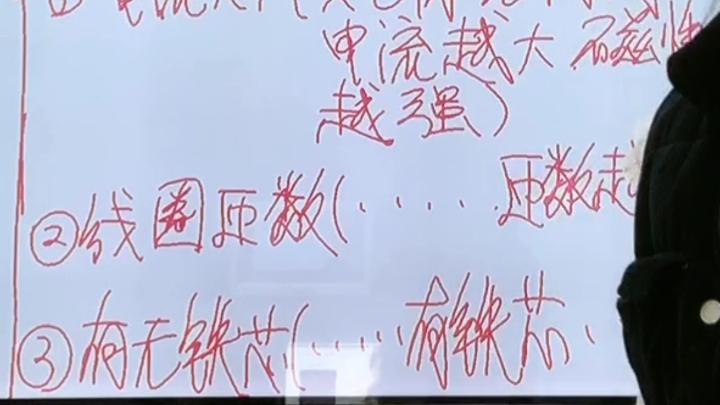 ① 电流大
电流越大 磁性
越强)
②线圈匝数(·····匝数越
③有无铁芯(·····有铁芯·